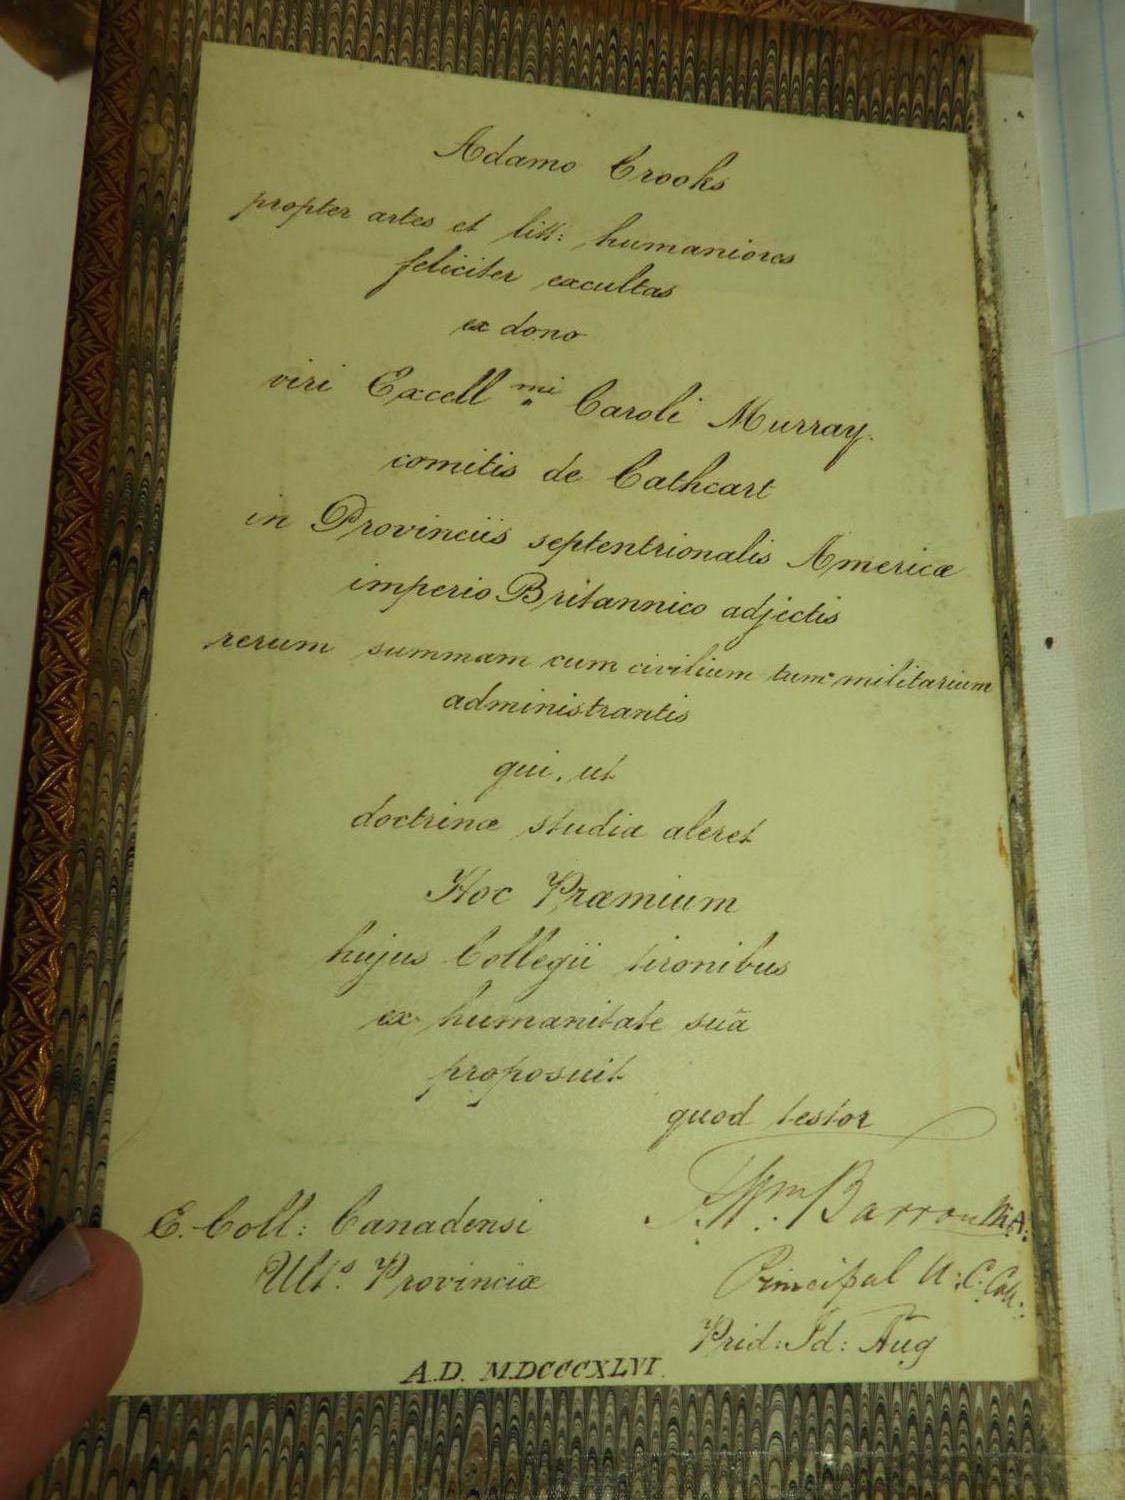 Adamo Crooks
propter artes et litt: humaniores
feliciter excultas
ex dono
viri Excell mi Caroli Murray.
comitis de Cathcart
in Provinciis septentrionalis Americæ
imperio Britannico adjectis
rerum summam cum civilium tum militarium
administrantis
qui, ut
doctrinæ studia aleret
Hoc Præmium
hujus Collegii tironibus
ex humanitate suâ
proposuit
quod testor
F. Wm. Barron M.A.
E. Coll: Canadensi
Principal U: C: Coll:
Ults. Provinciæ
Prid: Id: Aug
A.D. MDCCCXLVI.